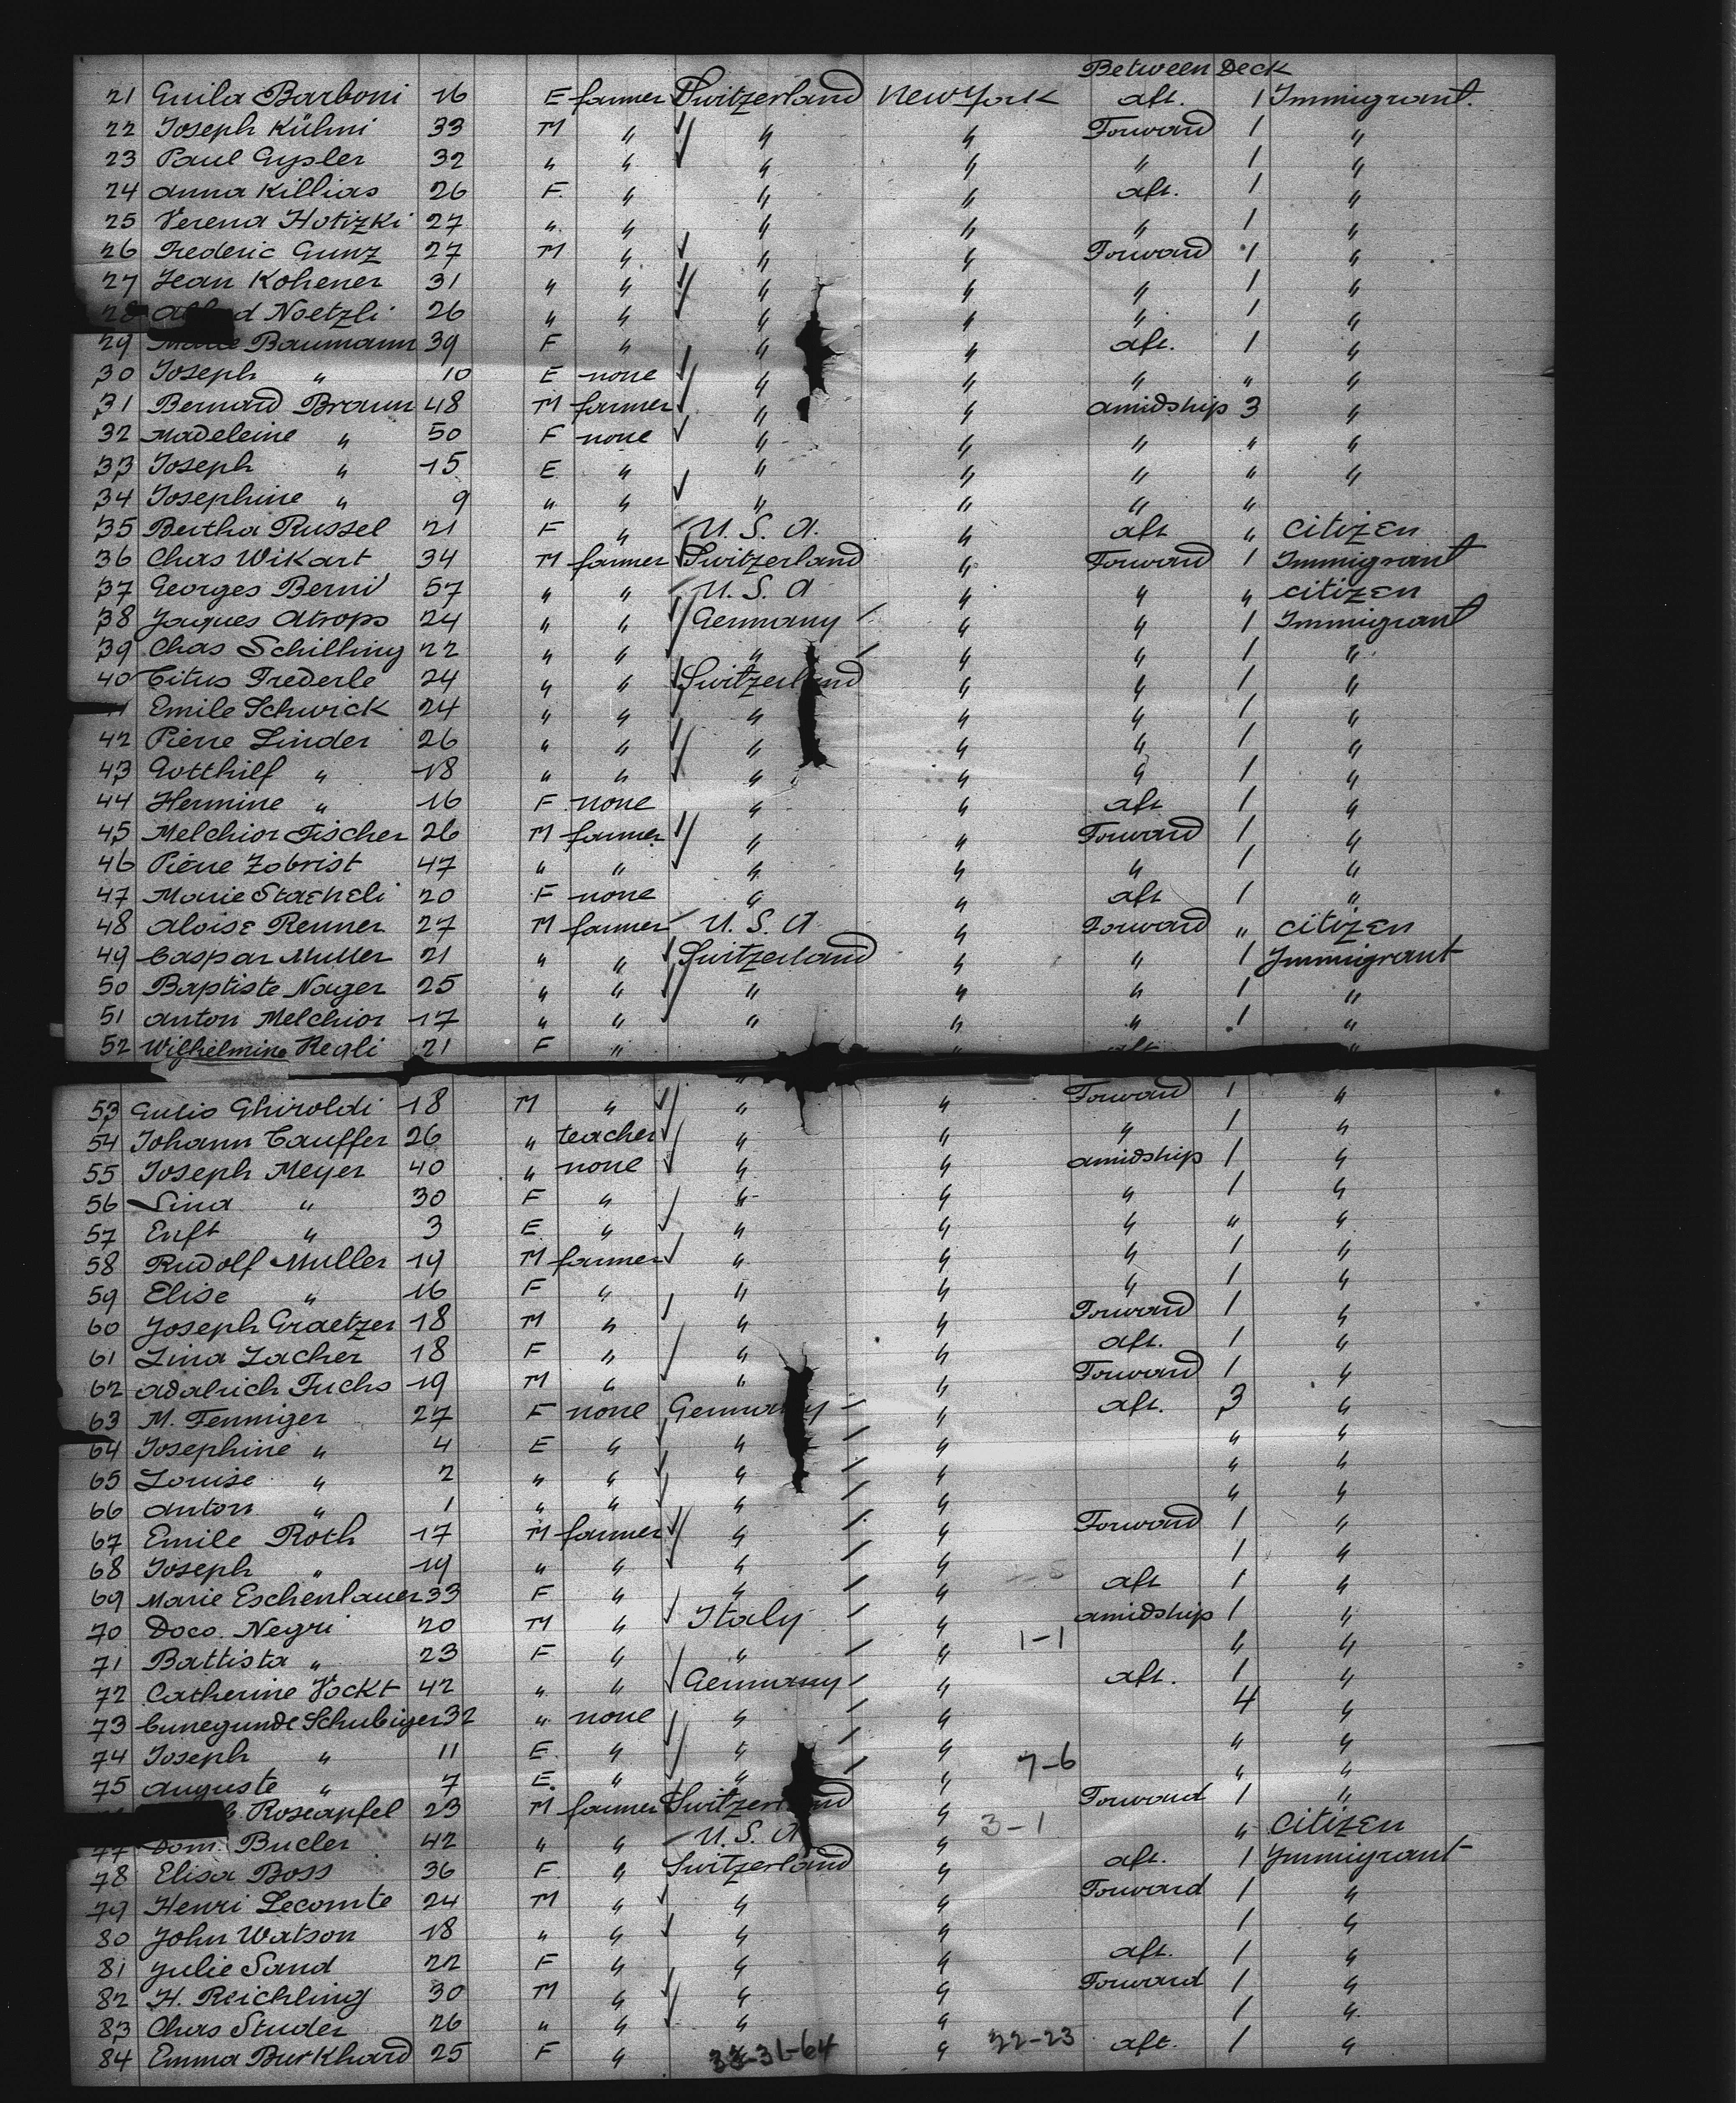 Between Deck
21 Guila Barboni 16 E farmer Switzerland New York aft. 1 Immigrant.
22 Joseph Kühni 33 M " " " Forward 1 "
23 Paul Gysler 32 " " " " " 1 "
24 Anna Killias 26 F. " " " aft. 1 "
25 Verena Hotizki 27 " " " " " 1 "
26 Frederic Gunz 27 M " " " Forward 1 "
27 Jean Kohener 31 " " " " " 1 "
28 d Noetzli 26 " " " " " 1 "
29 Marie Baumann 39 F " " " aft. 1 "
30 Joseph " 10 E none " " " " "
31 Bernard Braun 48 M farmer " " amidship 3 "
32 Madeleine " 50 F none " " " " "
33 Joseph " 15 E " " " " " "
34 Josephine " 9 " " " " " "
35 Bertha Russel 21 F " U. S. A. " aft " citizen
36 Chas Wikart 34 M farmer Switzerland " Forward 1 Immigrant
37 Georges Berni 57 " " U. S. A " " " citizen
38 Jaques Atrops 24 " " Germany " " 1 Immigrant
39 Chas Schilling 22 " " " " " 1 "
40 Titus Frederle 24 " " Switzerland " " 1 "
Emile Schwick 24 " " " " " 1 "
42 Pierre Linder 26 " " " " " 1 "
43 Gotthilf " 18 " " " " " 1 "
44 Hermine " 16 F. none " " aft 1 "
45 Melchior Fischer 26 M farmer " " Forward 1 "
46 Pierre Zobrist 47 " " " " " 1 "
47 Marie Staeheli 20 F none " " aft 1 "
48 Aloise Renner 27 M farmer U. S. A " Forward " citizen
49 Caspar Muller 21 " " Switzerland " " 1 Immigrant
50 Baptiste Nager 25 " " " " " 1 "
51 Anton Melchior 17 " " " " " 1 "
52 Wilhelmine Regli 21 F " " aft "
53 Gulio Ghiroldi 18 M " " " Forward 1 "
54 Johann Tauffer 26 " teacher " " " 1 "
55 Joseph Meyer 40 " none " " amidship 1 "
56 Lina " 30 F " " " " 1 "
57 " 3 E " " " " " "
58 Rudolf Muller 19 M farmer " " " 1 "
59 Elise " 16 F " " " " 1 "
60 Joseph Graetzer 18 M " " " Forward 1 "
61 Lina Lacher 18 F " " " aft. 1 "
62 Adalrich Fuchs 19 M " " " Forward 1 "
63 M. Fenniger 27 F none Germany " aft. 3 "
64 Josephine " 4 E " " " " "
65 Louise " 2 " " " " " "
66 Anton " 1 " " " " " "
67 Emile Roth 17 M farmer " " Forward 1 "
68 Joseph " 19 " " " " 1 "
69 Marie Eschenlauer 33 F " " " aft 1 "
70 Doco. Negri 20 M " Italy " amidship 1 "
71 Battista " 23 F " " " 1-1 " "
72 Catherine Vockt 42 " " Germany " aft. 1 "
73 Cunegunde Schubiger 32 " none " " 4 "
74 Joseph " 11 E. " " " " "
75 Auguste " 7 E. " " " 7-6 " "
Roseapfel 23 M farmer Switzerland " Forward 1 "
77 Dom. Bucler 42 " " U. S. A " 3-1 " citizen
78 Elisa Boss 36 F. " Switzerland " aft. 1 Immigrant
79 Henri Lecomte 24 M " " " Forward 1 "
80 John Watson 18 " " " " 1 "
81 Julie Sand 22 F " " " aft. 1 "
82 H. Reichling 30 M " " " Forward 1 "
83 Chas Studer 26 " " " " 1 "
84 Emma Burkhard 25 F " 33-31-64 " 22-23 aft. 1 "